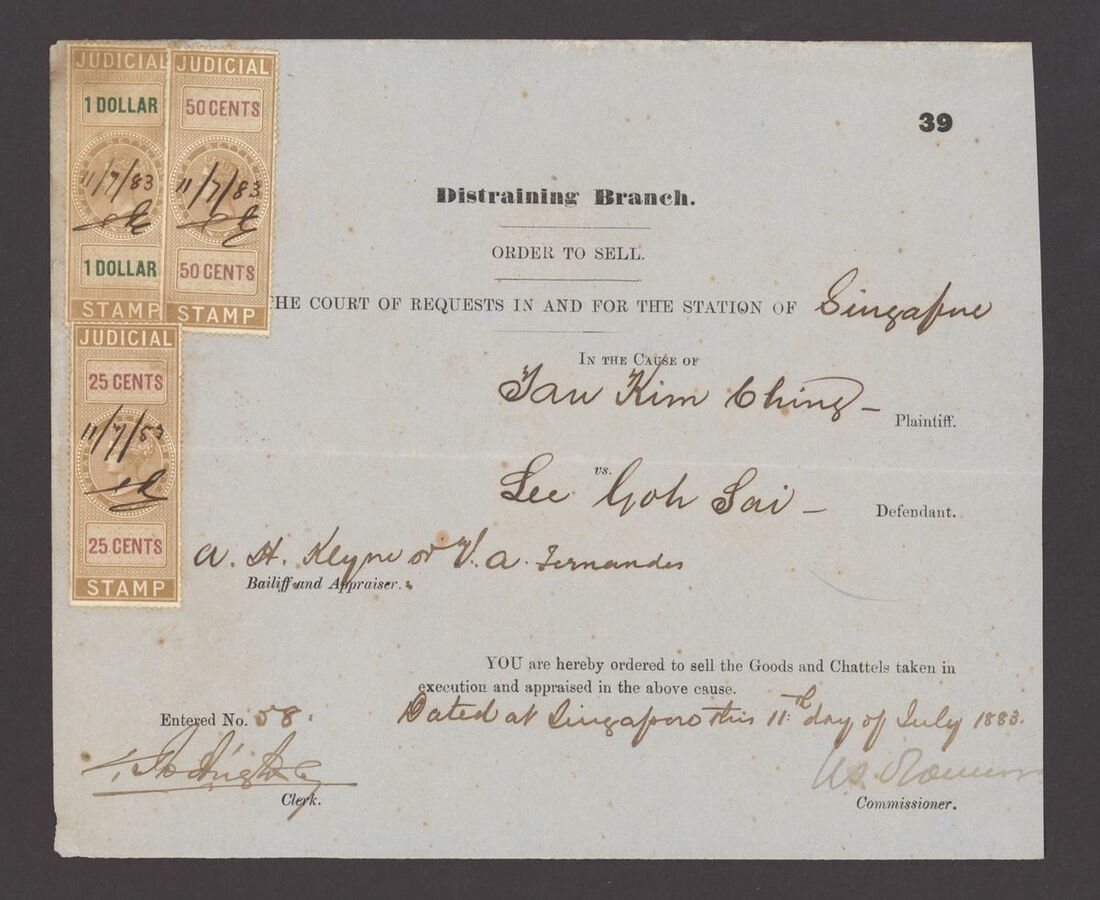 JUDICIAL
1 DOLLAR
11/7/83
1 DOLLAR
STAMP
JUDICIAL
50 CENTS
11/7/83
50 CENTS
STAMP
JUDICIAL
25 CENTS
11/7/83
25 CENTS
STAMP
39
Distraining Branch.
ORDER TO SELL.
HE COURT OF REQUESTS IN AND FOR THE STATION OF Singapore
IN THE CAUSE OF
Tan Kim Ching -
Plaintiff.
vs.
Lee Goh Sai -
Defendant.
A. H. Kleyne or V. A. Fernandes
Bailiff and Appraiser.
YOU are hereby ordered to sell the Goods and Chattels taken in
execution and appraised in the above cause.
Entered No. 58.
Dated at Singapore this 11th day of July 1883.
Clerk.
Commissioner.